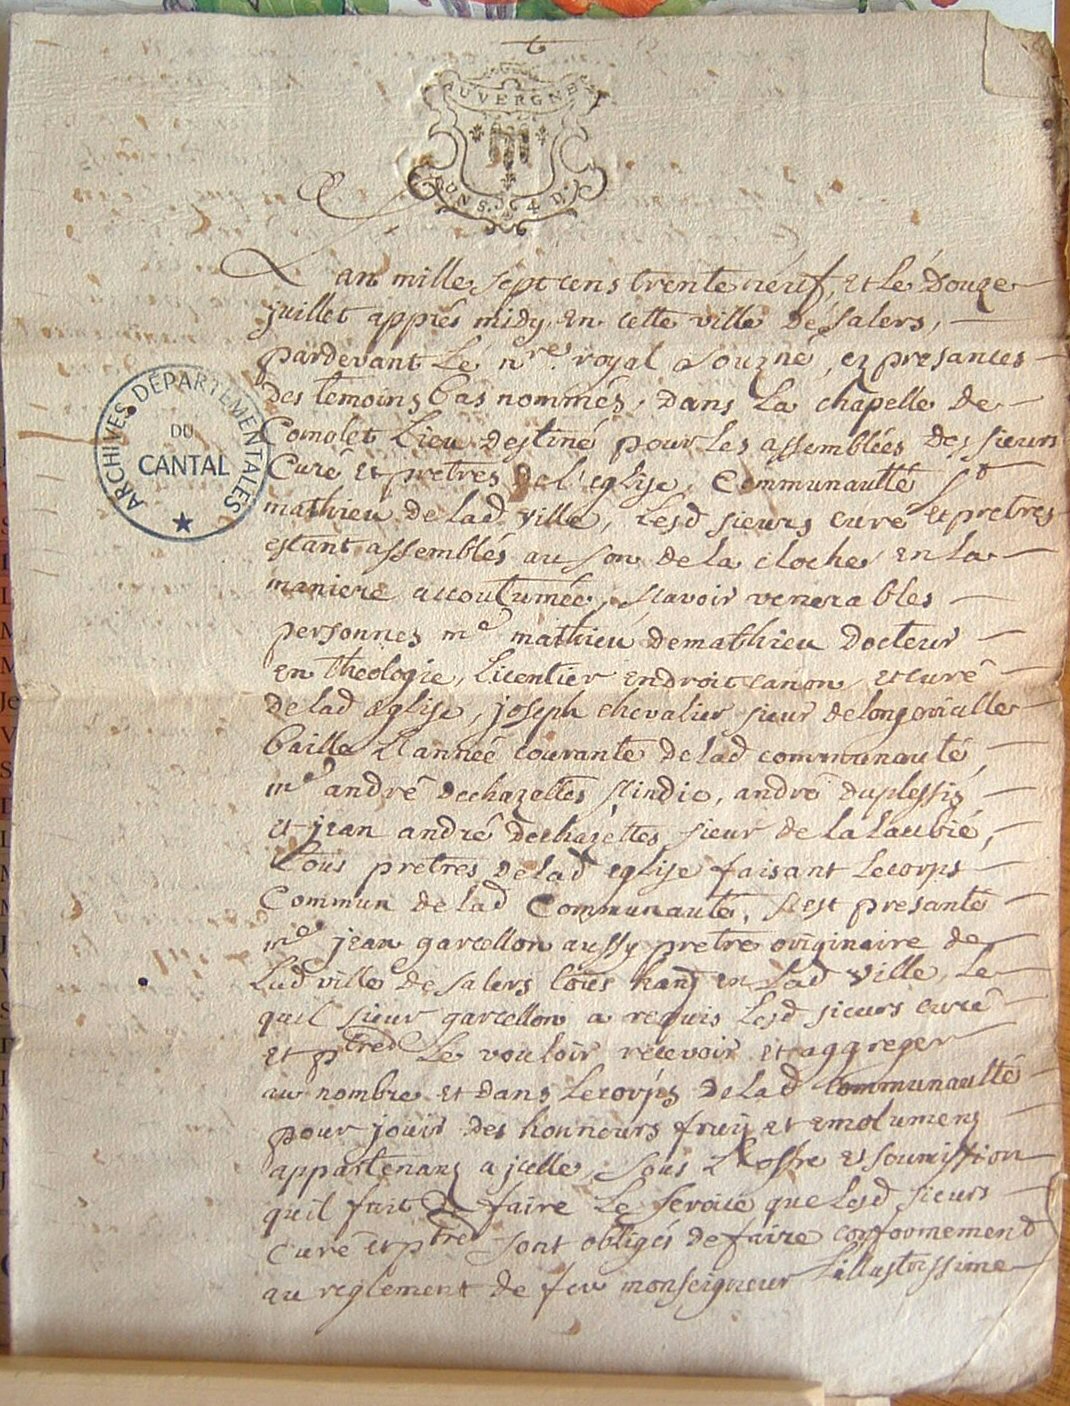 UVERGNE
ARCHIVES DÉPARTEMENTALES
DU
CANTAL
Lan mille sept cens trente neuf, et Le Douze
juillet apprés midy, en cette ville de salers,
pardevant Le nre. royal souzné, ez presances
des temoins bas nommés, dans La chapelle de
Comolet Lieu destiné pour Les assemblées des sieurs
Curé et pretres de l'eglise, Communaulté St
mathieu de lad ville, Lesd sieurs curé et pretres
estant assemblés au son de la cloche en la
maniere accoutumée, scavoir venerables
personnes me mathieu demathieu Docteur
en theologie, Licentier endroit canon, et curé
de lad eglise, joseph chevalier sieur delongevialle
baille L'année courante de lad communauté,
me andré dechazettes sindic, andré duplessis
et jean andré dechazettes sieur de la laubié,
tous pretres de lad eglise faisant Lecorps
Commun de lad Communauté, sest presanté
me jean garcellon aussy pretre originaire de
Lad ville de salers en Lad ville, Le
quel sieur garcellon a requis Lesd sieurs curé
et ptres Le vouloir recevoir et aggreger
au nombre et dans Lecorps de Lad Communaulté
pour jouir des honneurs fruis et emolumens
appartenans a jcelle, sous L'offre et soumission
quil fait de faire Le service que Lesd sieurs
Curé et ptres sont obligés de faire conformement
au reglement de feu monseigneur Lillustrissime